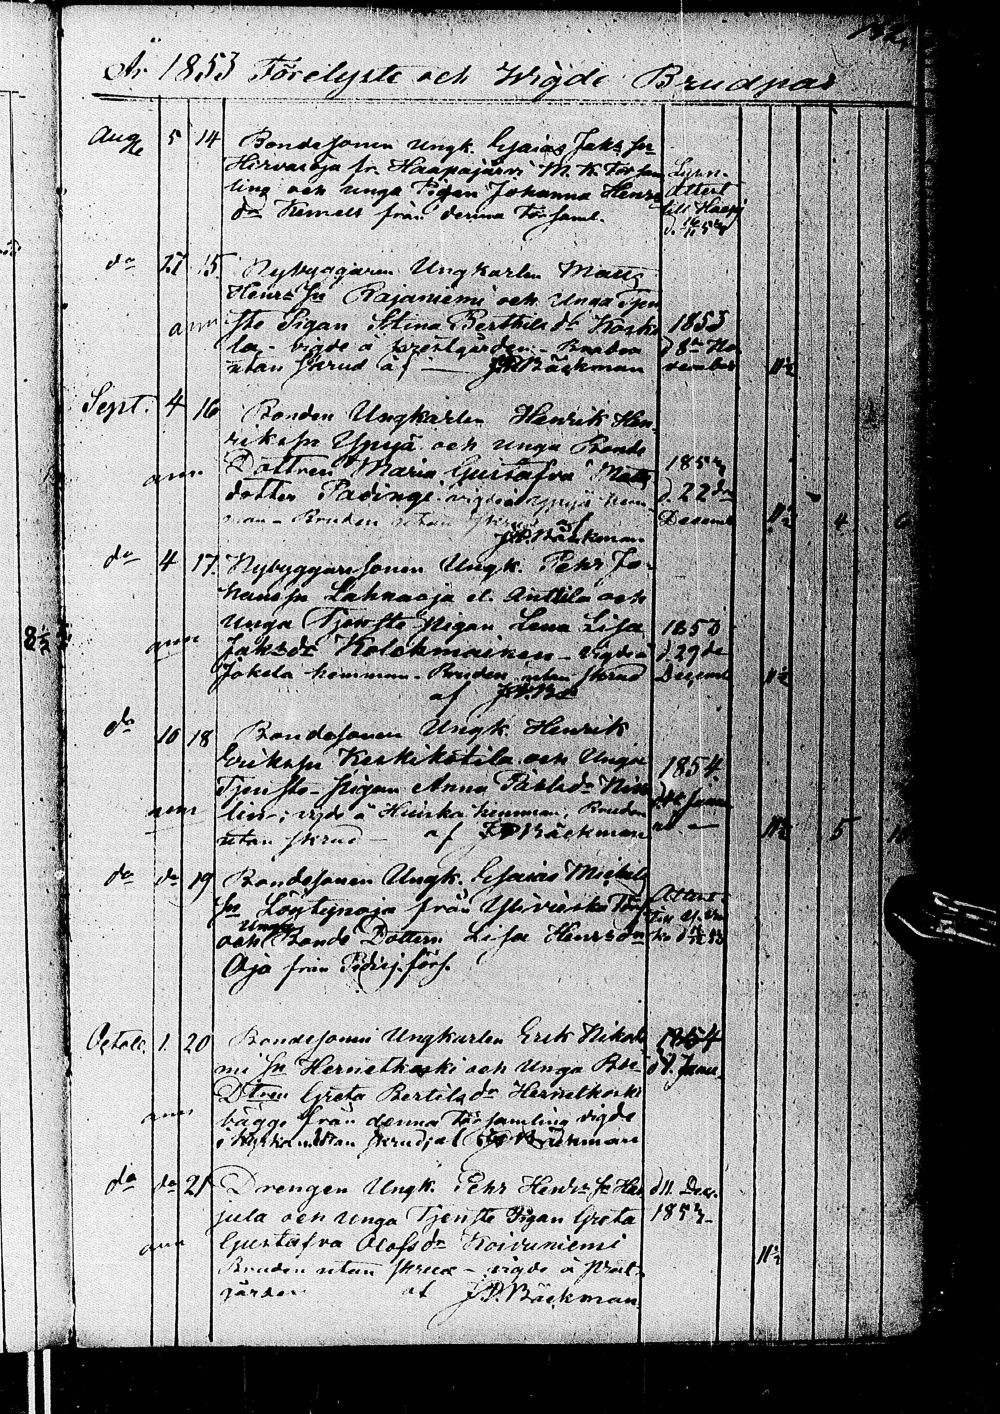 År 1853 Förelyste och Wigde Brudpar
Aug. 5 14 Bondesonen Ungk. Esaias Jaks Sn
Hirvasoja fr. Haapajärvi M. K. Församling
och unga Pigan Johanna Henrs
dr från denna Församl.
Attest
till Haapj
do 15 Nybyggaren Ungkarlen Matts
Henrs Sn Rajaniemi och Unga Tjen
ste Pigan Stina Berthils dr Koski
la - vigde å Prestgården - Bruden
utan skrud af — J.P. Bäckman
1853
d 8de No
vember
11½
Sept. 4 16 Bonden Ungkarlen Henrik Hen
riksn Ypyä och unga Bonde
Dottren Maria Gustafva Matts
dotter Padinge vigde i Ypyä hem
man - Bruden utan skrud af
J.P. Bäckman
1853
d. 22 dra
Decemb
11½ 4
do 4 17 Nybyggaresonen Ungk. Pehr Jo
hansn Lahnaoja el. Anttila och
Unga Tjenste pigan Lena Lisa
Jaks dr Kolehmainen - vigde i
Jokela hemman - Bruden utan skrud
af J.P.B
1853
d. 29de
Decemb
11½
do 18 Bondesonen Ungk. Henrik
Eriksn Keskikötilä och Unga
Tjenste-pigan Anna Påhls dr
vigde å hemman, Bruden
utan skrud — af J P Bäckman
1854
11½ 5
do do 19 Bondesonen Ungk. Esaias Michels
Sn Löytynoja från Ylivieska Förs
och Unga Bonde Dottern Lisa Henrsdr
Oja från Pidisj. förs.
Attest
till Ylivies
ka
Octob. 1. 20 Bondesonen Ungkarlen Erik Nikode
mi Sn Hernetkoski och Unga Bde
Dtren Greta Bertils dr Hernetkoski
bägge från denna Församling vigde
i Kyrkan utan skrud af J P Bäckman
1854
d 8. Janu.
do do 21 Drengen Ungk. Pehr Henrs Sn Har
jula och unga Tjenste Pigan Greta
Gustafva Olofs dr Koivuniemi
Bruden utan skrud - vigde å prest-
gården af J.P. Bäckman
d 11. Dec.
1853
11½
8½